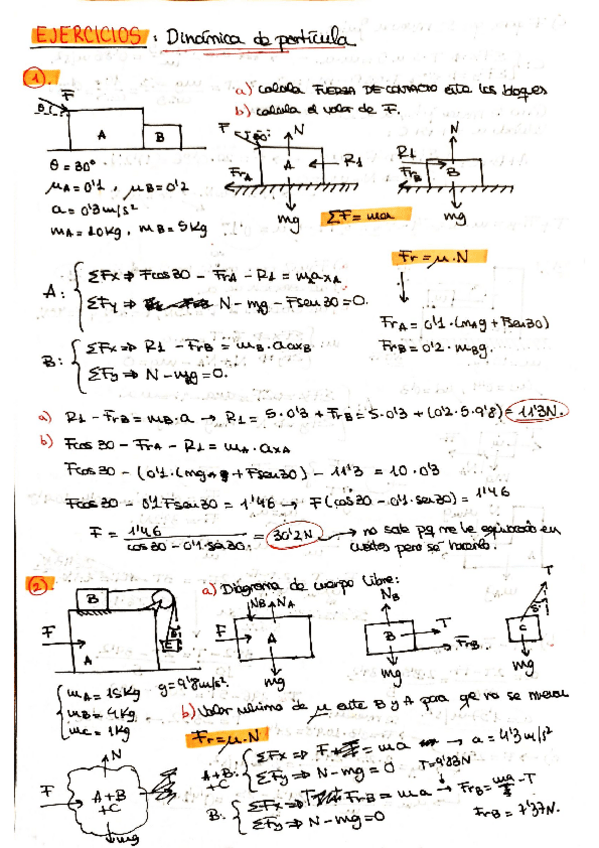 EJERCICIOS : Dinámica de partícula
1).
a) calcula FUERZA DE CONTACTO entre los bloques
b) calcula el valor de F.
F
θ
A
B
F
30°
N
A
R1
FrA
mg
R1
N
B
FrB
mg
θ = 30°
μA = 0'1 , μB = 0'2
a = 0'3 m/s²
mA = 10Kg , mB = 5Kg
ΣF = ma
Fr = μ·N
A: ΣFx ⇒ Fcos30 - FrA - R1 = mA·axA
ΣFy ⇒ N - mg - Fsen30 = 0.
FrA = 0'1·(mAg + Fsen30)
FrB = 0'2·mBg.
B: ΣFx ⇒ R1 - FrB = mB·axB
ΣFy ⇒ N - mBg = 0.
a) R1 - FrB = mB·a → R1 = 5·0'3 + FrB = 5·0'3 + (0'2·5·9'8) = 11'3N.
b) Fcos30 - FrA - R1 = mA·axA
Fcos30 - (0'1·(mgA + Fsen30) - 11'3 = 10·0'3
Fcos30 - 0'1Fsen30 = 1'46 → F(cos30 - 0'1·sen30) = 1'46
F = 1'46 / cos30 - 0'1·sen30 = 30'2N → no sale pq me he equivocado en
cuentas pero se hacerlo.
2).
a) Diagrama de cuerpo libre:
B
F
A
C
NB NA
F
A
mg
NB
B
T
FrB
mg
T
C
mg
mA = 15Kg
mB = 4Kg
mC = 1Kg
g = 9'8m/s²
b) Valor mínimo de μ entre B y A para que no se mueva
Fr = μ·N
N
F
A+B
+C
mg
A+B+C: ΣFx ⇒ F = ma → a = 4'3 m/s²
ΣFy ⇒ N - mg = 0
T = 9'83N
B: ΣFx ⇒ FrB = ma → FrB = - T
ΣFy ⇒ N - mg = 0
FrB = 7'37N.